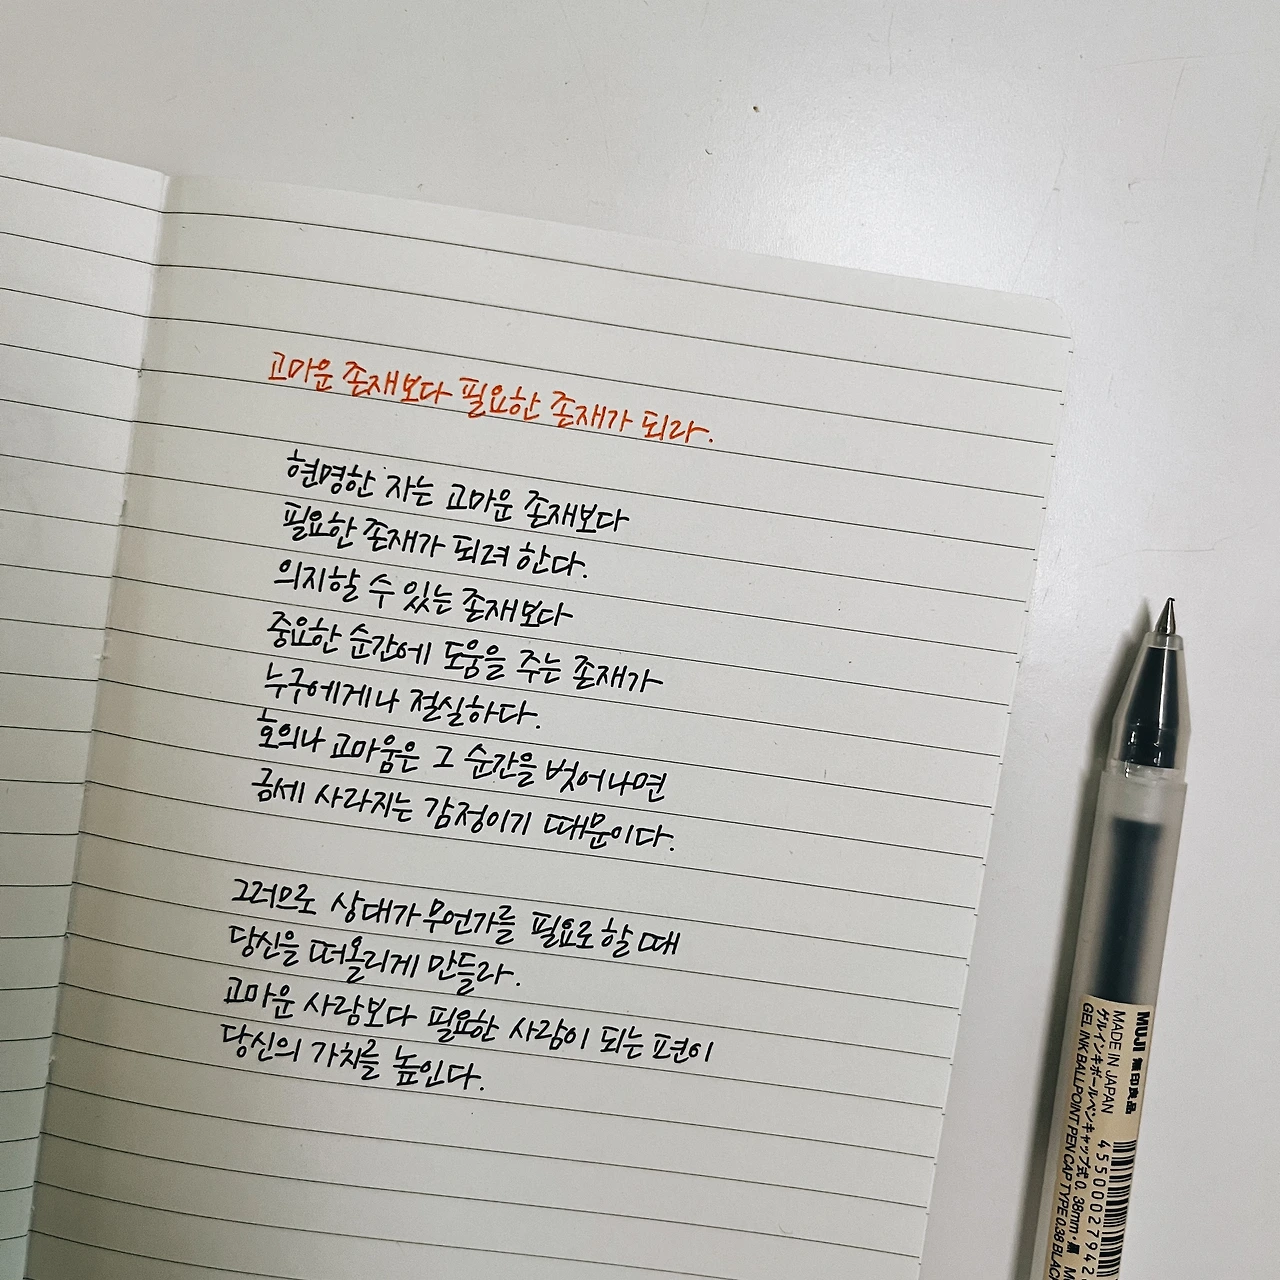 고마운 존재보다 필요한 존재가 되라.
현명한 자는 고마운 존재보다
필요한 존재가 되려 한다.
의지할 수 있는 존재보다
중요한 순간에 도움을 주는 존재가
누구에게나 절실하다.
호의나 고마움은 그 순간을 벗어나면
금세 사라지는 감정이기 때문이다.
그러므로 상대가 무언가를 필요로 할 때
당신을 떠올리게 만들라.
고마운 사람보다 필요한 사람이 되는 편이
당신의 가치를 높인다.
MUJI 無印良品
MADE IN JAPAN 45500027942
ゲルインキボールペンキャップ式 0.38mm・黒
GEL INK BALLPOINT PEN CAP TYPE 0.38 BLAC